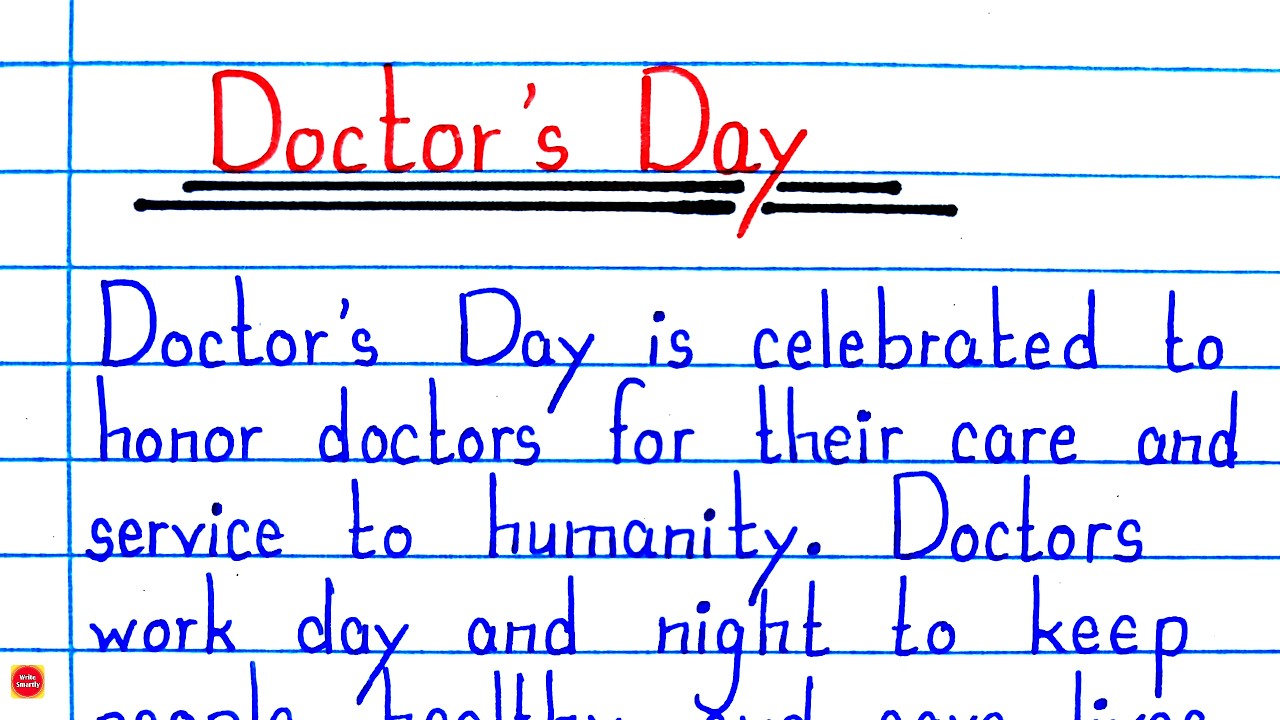 Doctor's Day
Doctor's Day is celebrated to
honor doctors for their care and
service to humanity. Doctors
work day and night to keep
people healthy and save lives
Write
Smartly